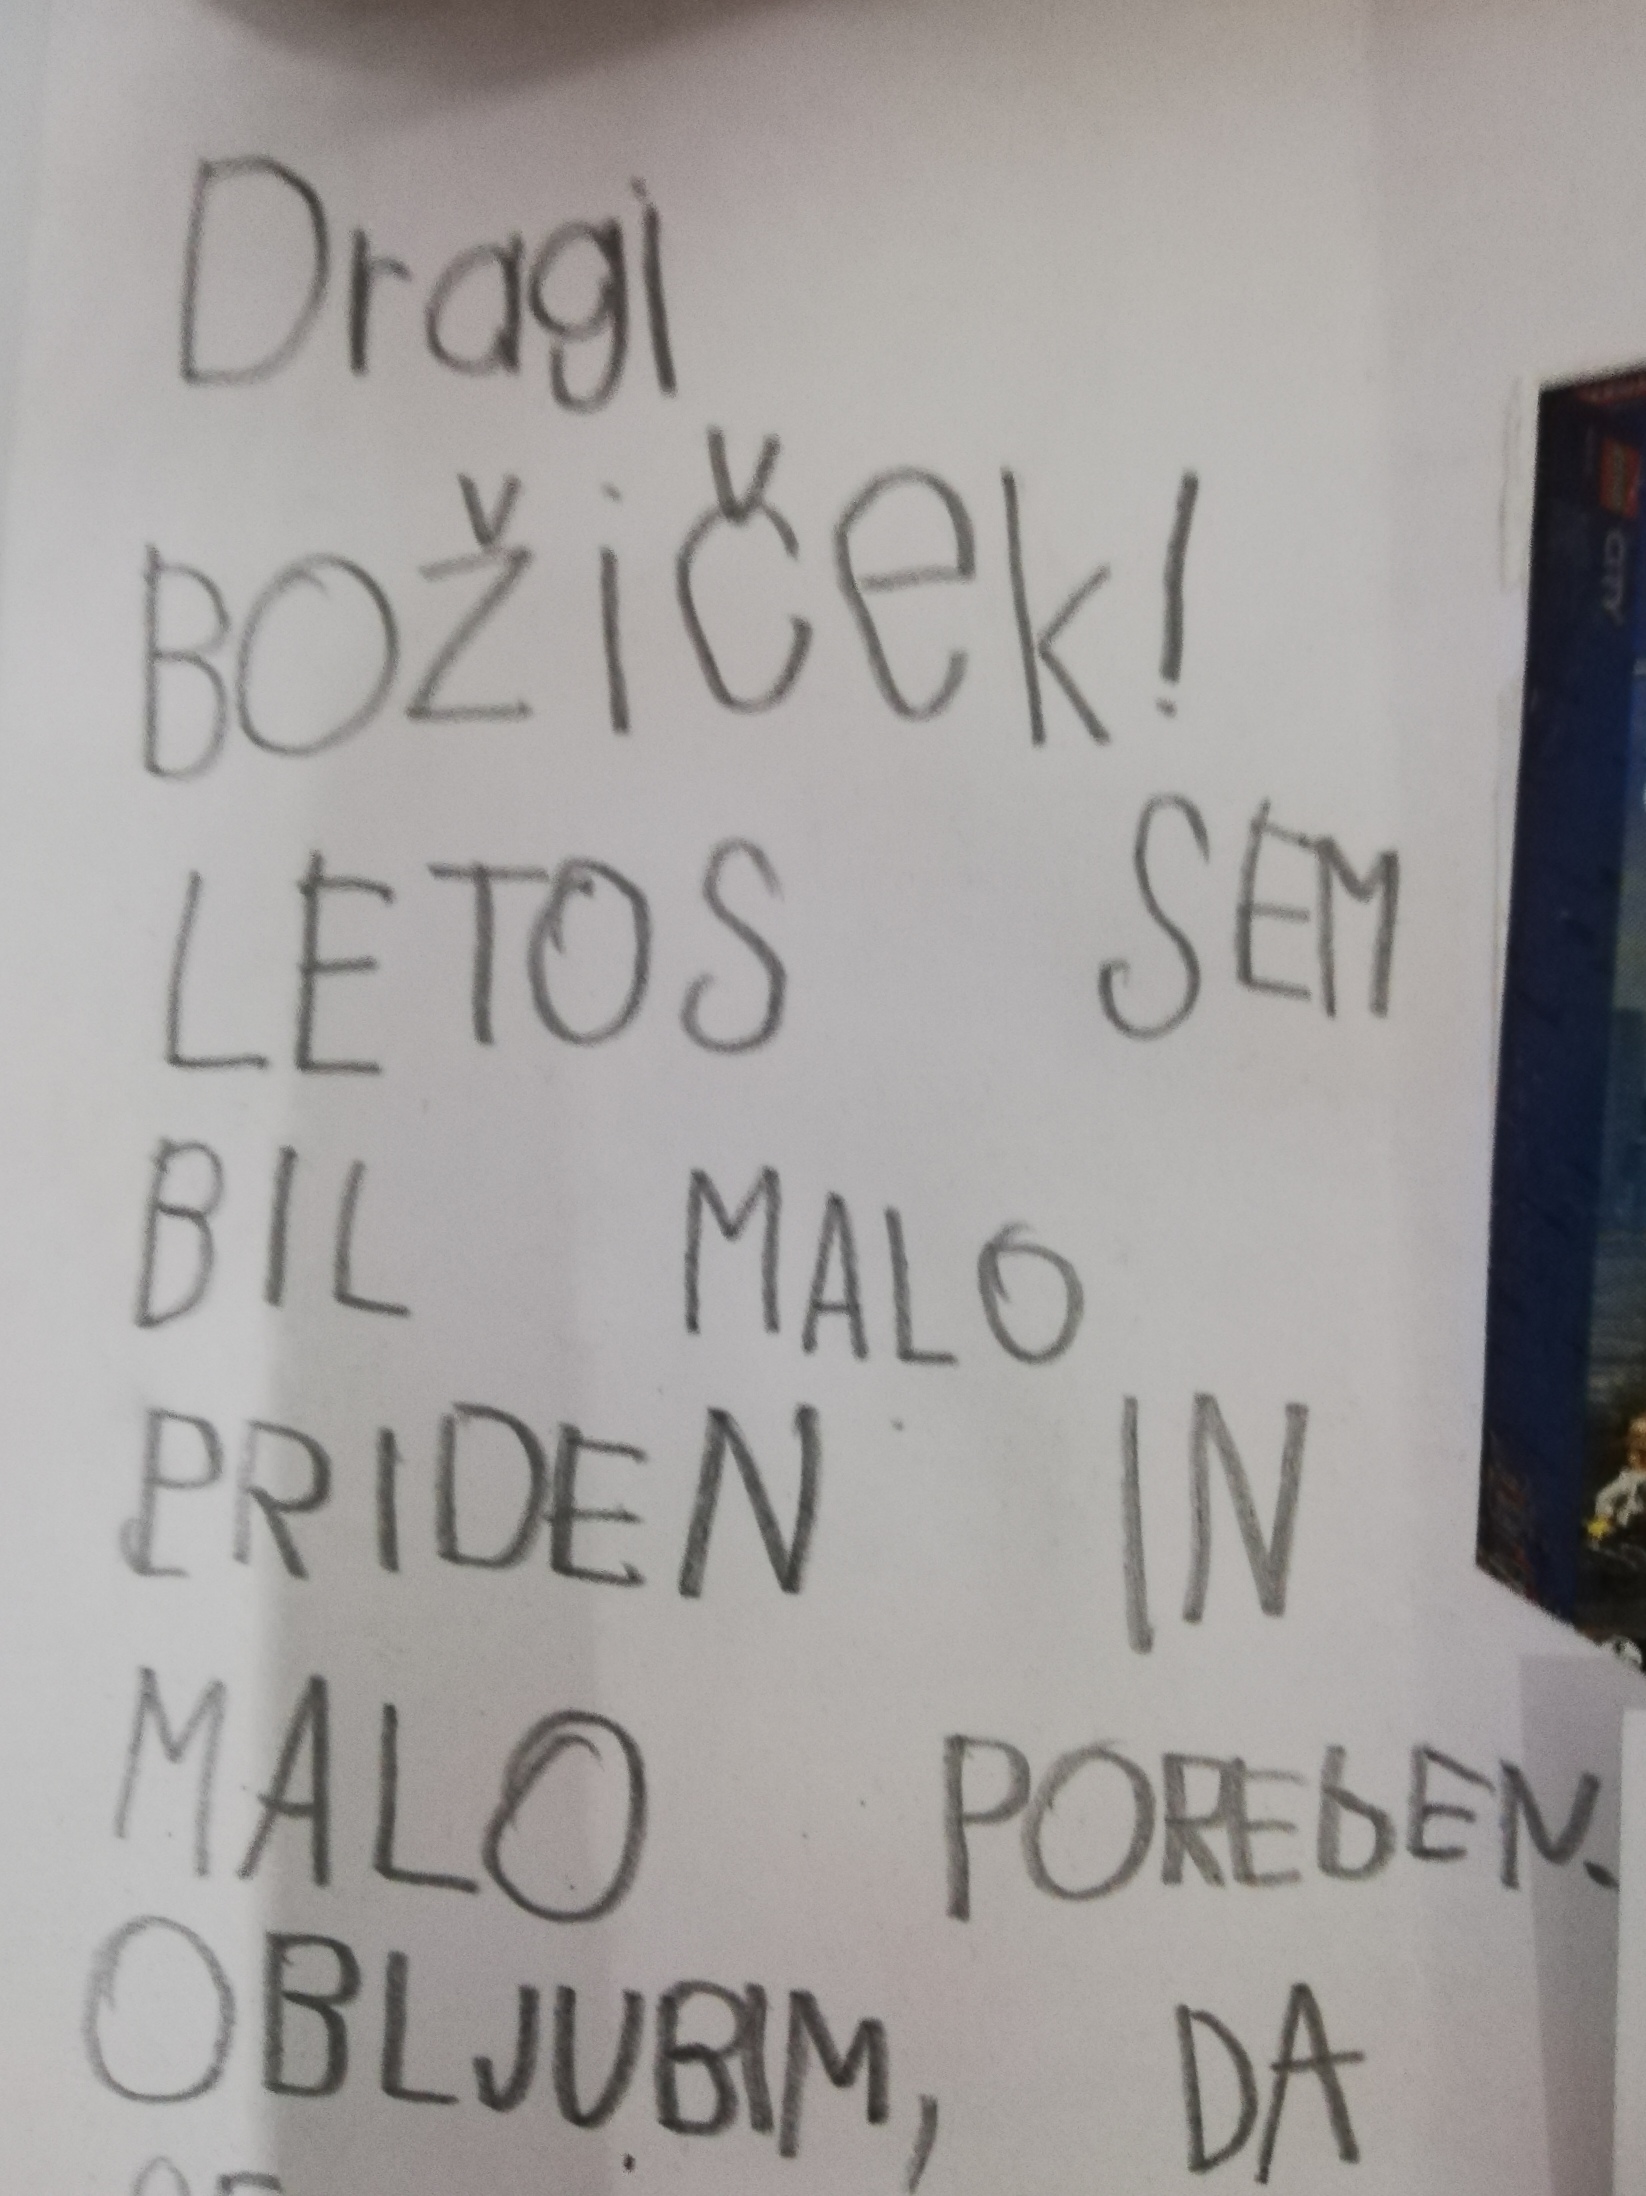 Dragi
BOŽiček!
LETOS SEM
BIL MALO
PRIDEN IN
MALO POREDEN.
OBLJUBIM, DA
CITY